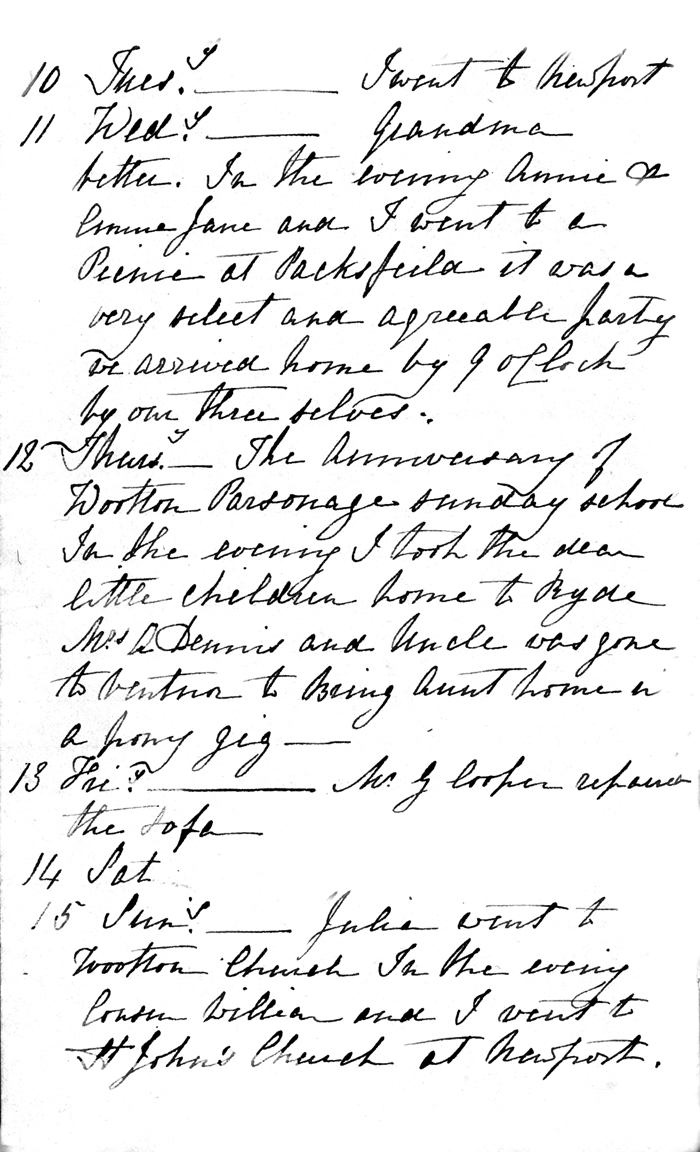 10 Tues.y ——— I went to Newport
11 Wed.y ——— Grandma
better. In the evening Annie &
Emma Jane and I went to a
Picnic at Packsfeild it was a
very select and agreeable party
we arrived home by 9 oClock
by our three selves.
12 Thurs.y — The Anniversary of
Wootton Parsonage sunday school
In the evening I took the dear
little children home to Ryde
Mrs A Dennis and Uncle was gone
to Ventnor to Bring Aunt home in
a pony gig —
13 Fri.y ——— Mr G Cooper repaired
the sofa
14 Sat
15 Sun.y ——— Julia went to
Wootton Church In the evening
Cousin William and I went to
St John's Church at Newport.